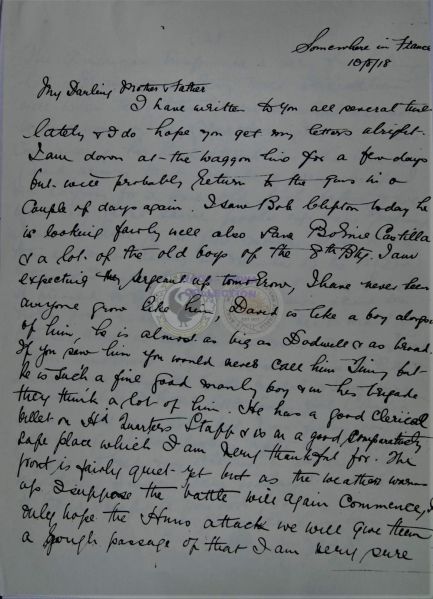 Somewhere in France
10/5/18
My Darling Mother & Father
I have written to you all several times
lately & I do hope you get my letters alright.
I am down at the waggon line for a few days
but will probably return to the guns in a
couple of days again. I saw Bob Clipton today he
is looking fairly well also saw Castilla
& a lot of the old boys of the 8th Bty. I am
expecting the Sergeant up tomorrow, I have never seen
anyone grow like him, David is like a boy alongside
of him, he is almost as big as Dodwell & as broad.
If you saw him you would never call him Tiny but
he is such a fine good manly boy & in his brigade
they think a lot of him. He has a good clerical
billet on Hd Quarters Staff & is in a good comparatively
safe place which I am very thankful for. The
front is fairly quiet yet but as the weather warms
up I suppose the battle will again commence, I
only hope the Huns attack we will give them
a rough passage of that I am very sure